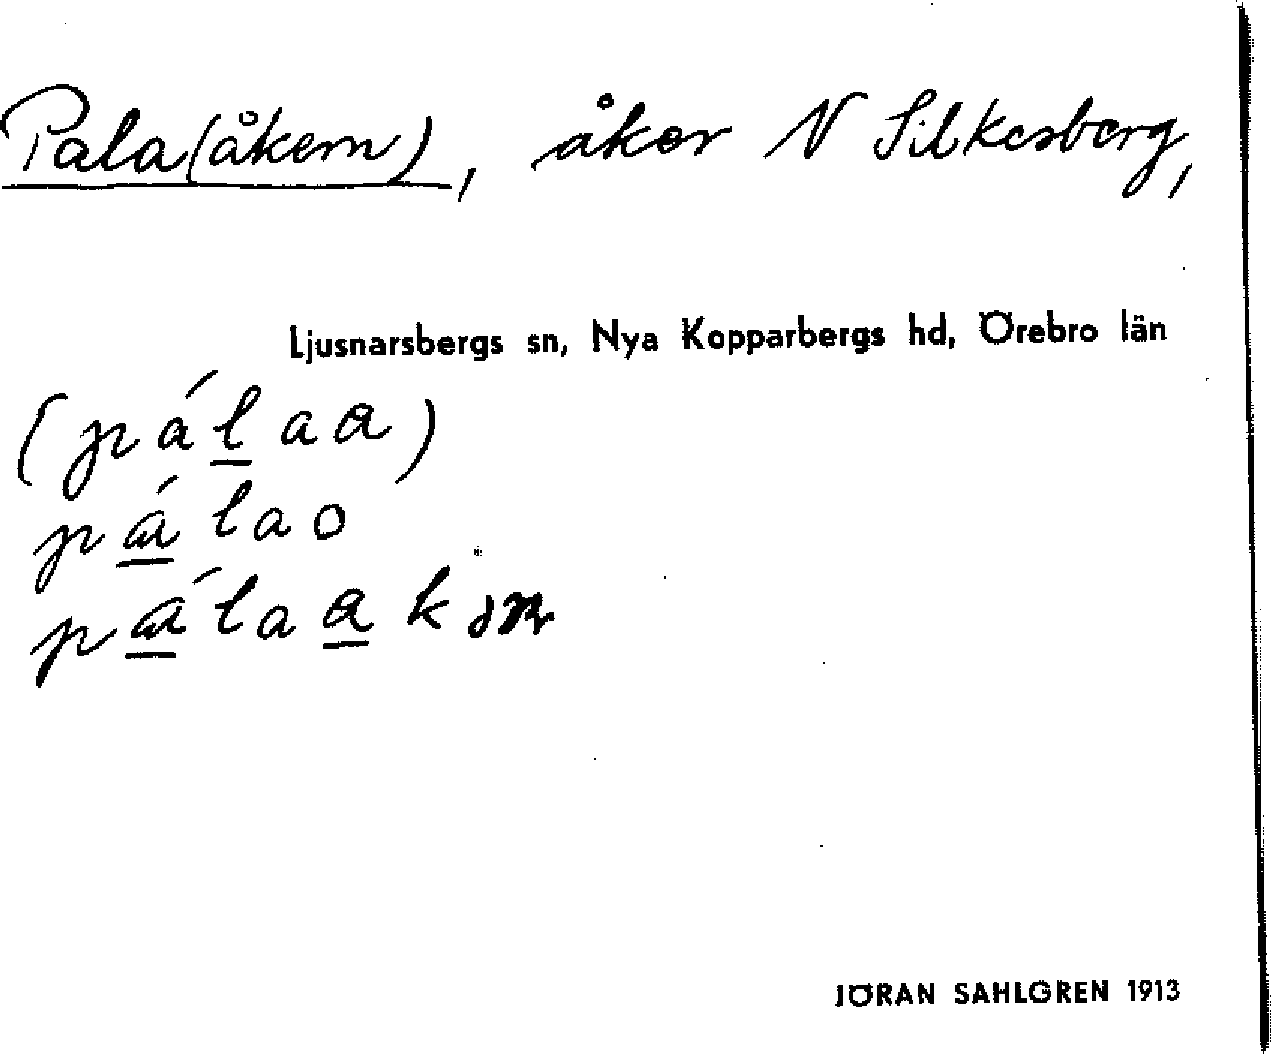 Pala(åkern), åker N Silkesberg,
Ljusnarsbergs sn, Nya Kopparbergs hd, Örebro län
(pálaa)
pálao
pálaakən
JÖRAN SAHLGREN 1913